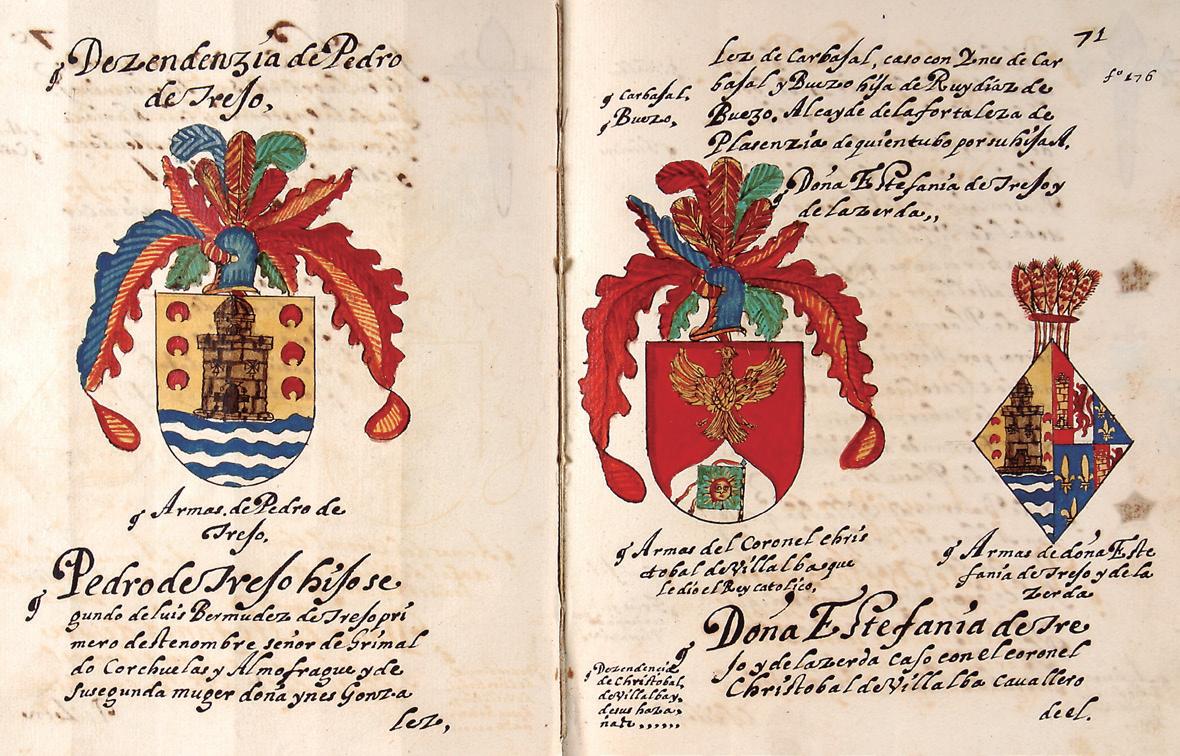 Dezendenzia de Pedro
de Treso,
Armas. de Pedro de
Treso,
Pedro de Treso hiso se
gundo de luis Bermudez de Treso pri
mero destenombre señor de Grimal
do Corchuelas y Almofrague y de
su segunda muger doña ynes Gonza
lez,
71
fº 176
lez de Carbasal, caso con Ynes de Car
basal y Buezo hija de Ruy diaz de
Buezo. Alcayde de la fortaleza de
Plasenzia de quien tubo por su hisa A.
q Carbasal,
q Buezo,
Doña Estefania de Treso y
de la zerda,,
q Armas del Coronel chris
tobal de Villalba que
le dio el Rey catolico,
q Armas de doña Este
fania de Treso y de la
zerda
Doña Estefania de Tre
so y de la zerda caso con el coronel
Christobal de Villalba cavallero
de el.
q Dezendencia
de Christobal,
de Villalba y,
de sus haza,
ñas,......